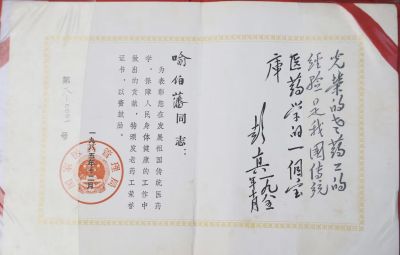 光荣的老药工的
经验是我国传统
医药学的一个宝
库
彭真 一九八五
年十月
喻伯藩同志：
为表彰您在发展祖国传统医药
学、保障人民身体健康的工作中
做出的贡献，特颁发老药工荣誉
证书，以资鼓励。
国家医药管理局
一九八五年十二月